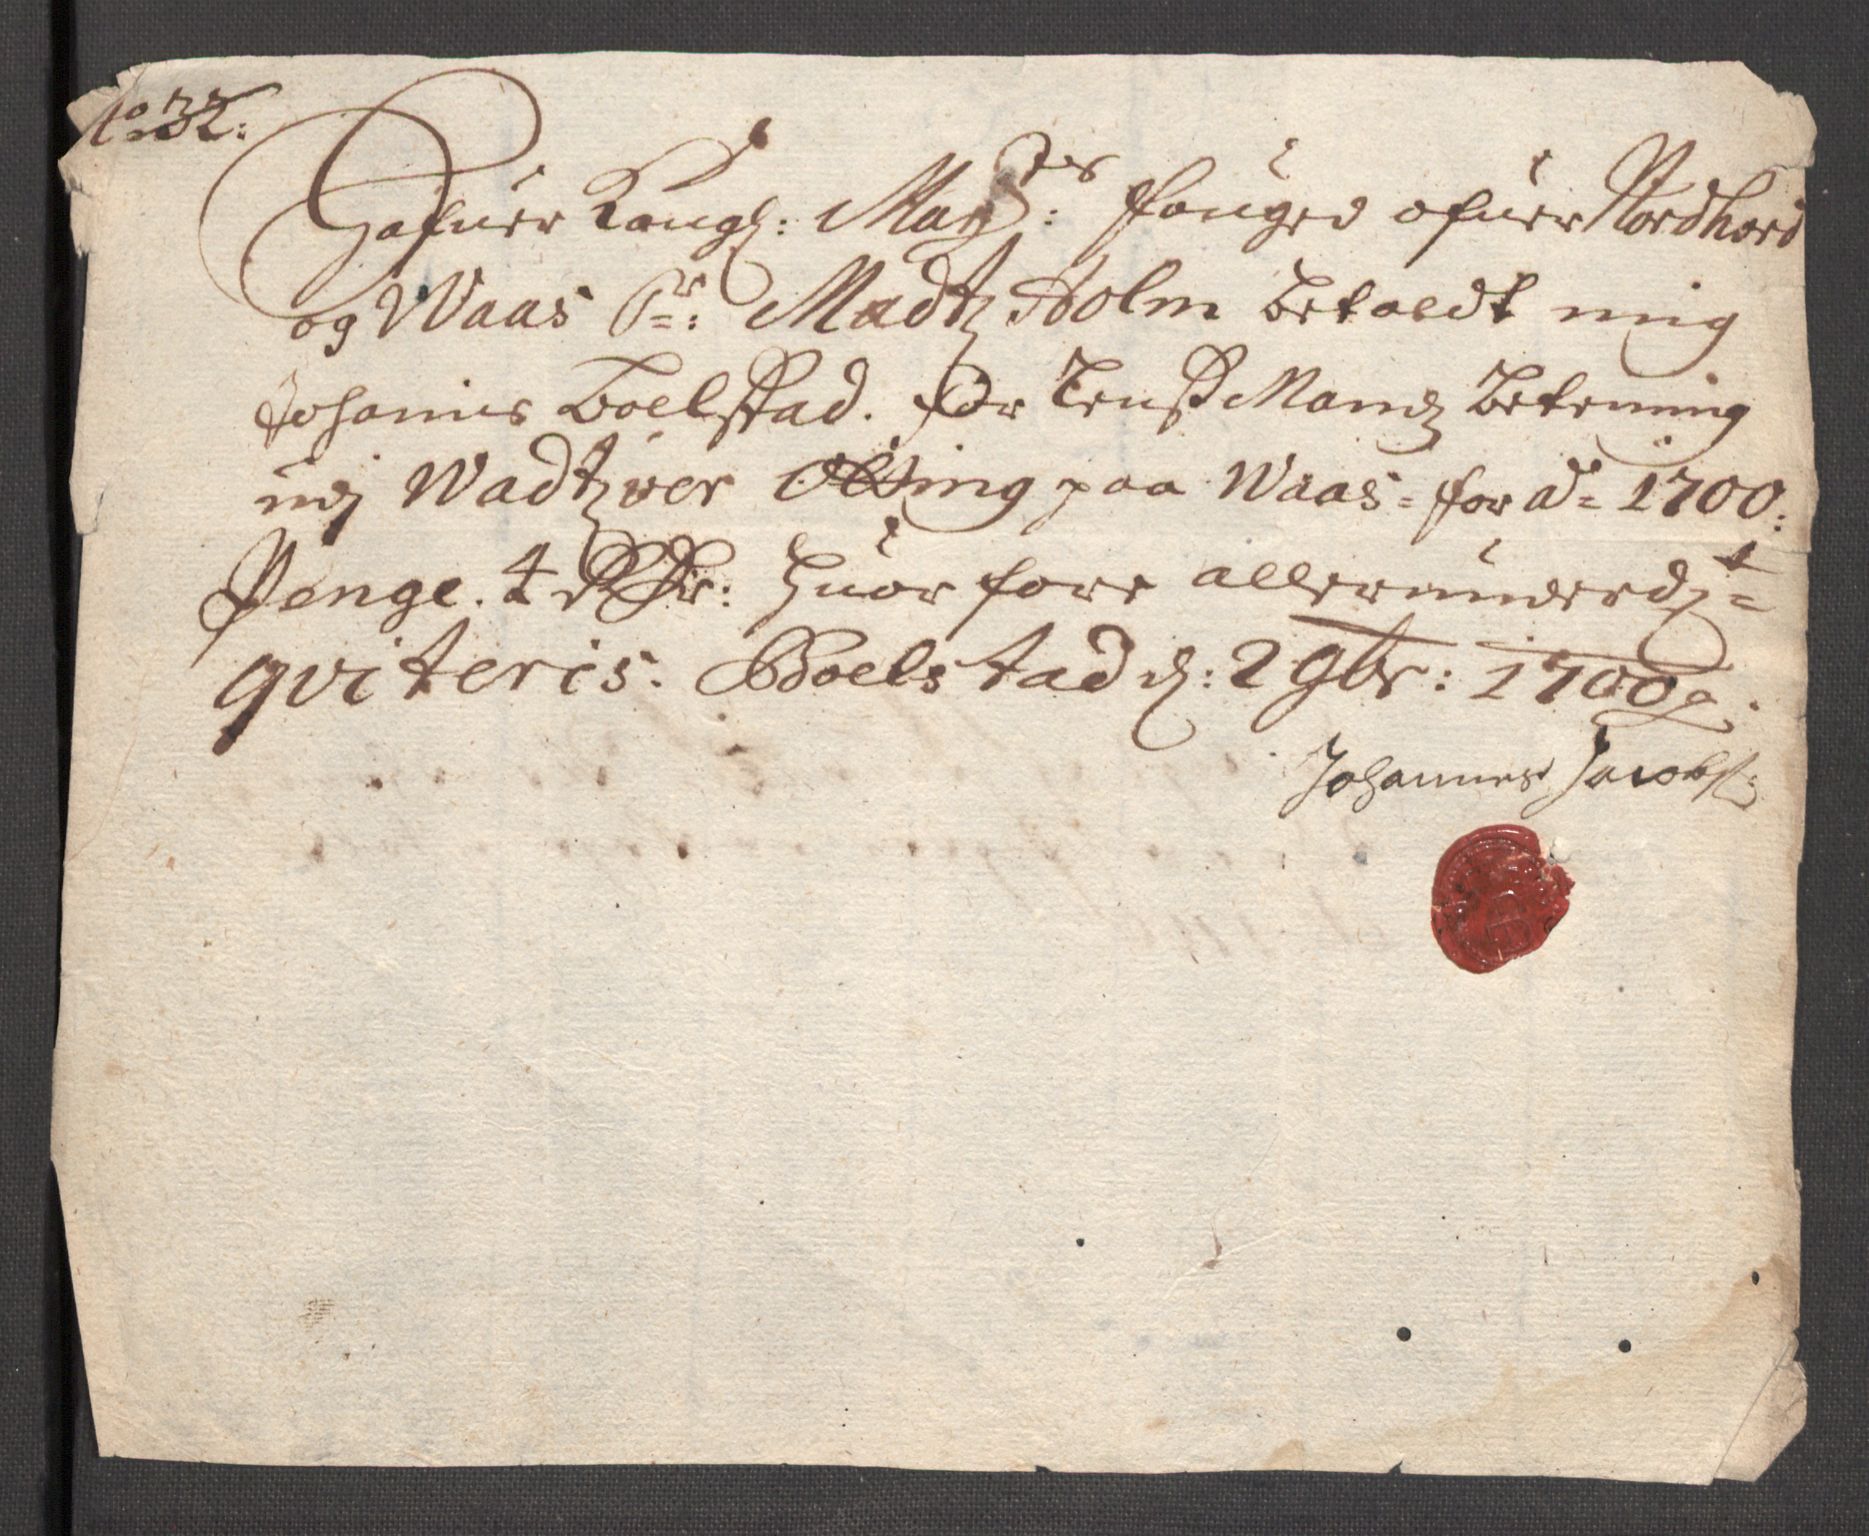 No 32:
Hafuer Kongl: Maytz: fouged ofuer Nordhord
og Waas Sr: Madtz Holm betaldt mig
Johanis Boelstad. for Lensmandz betening
udj Wadtzver Otting paa Waas = for Ao 1700:
Penge. 4 Rdr: Huorfore allerunderdt =
qviteris. Boelstad d: 2 9br: 1700
Johannes Jacobs: